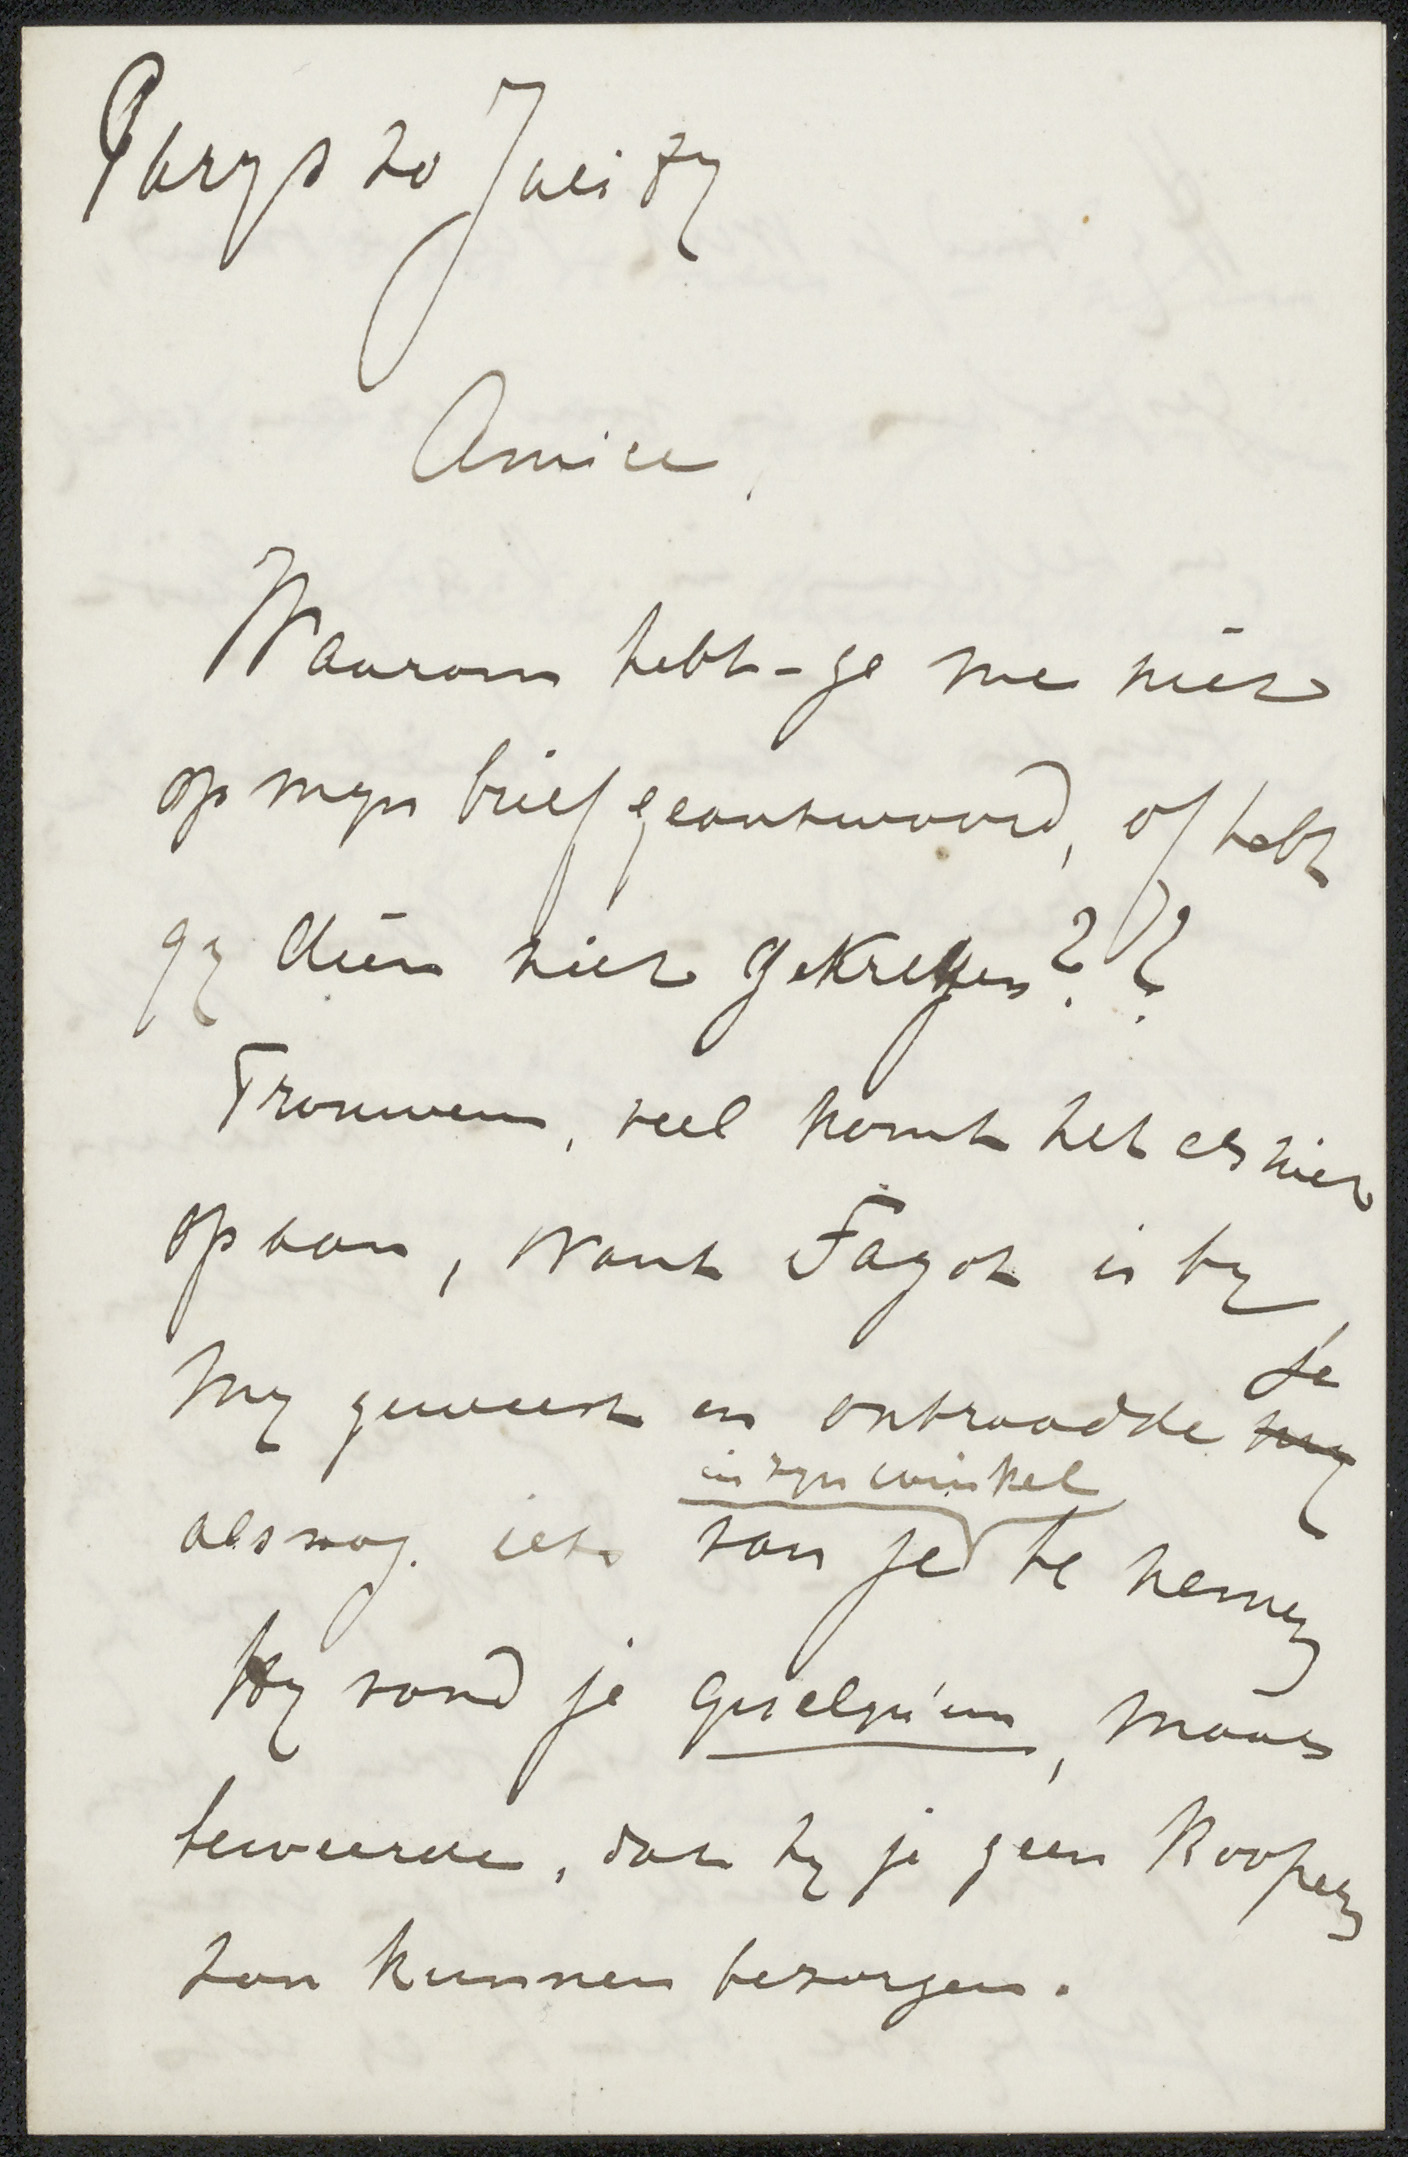 Parys 20 Juli
Amice,
Waarom hebt-ge me niet
op mijn brief geantwoord, of hebt
gy dien niet gekregen??
Trouwens, veel komt het er niet
op aan, want Fagot is by
my geweest en ontraadde je my
in zyn winkel
alsnog iets van je te nemen
Hy vond je quelqu'un, maar
beweerde, dat hy je geen Koopers
zou kunnen bezorgen.